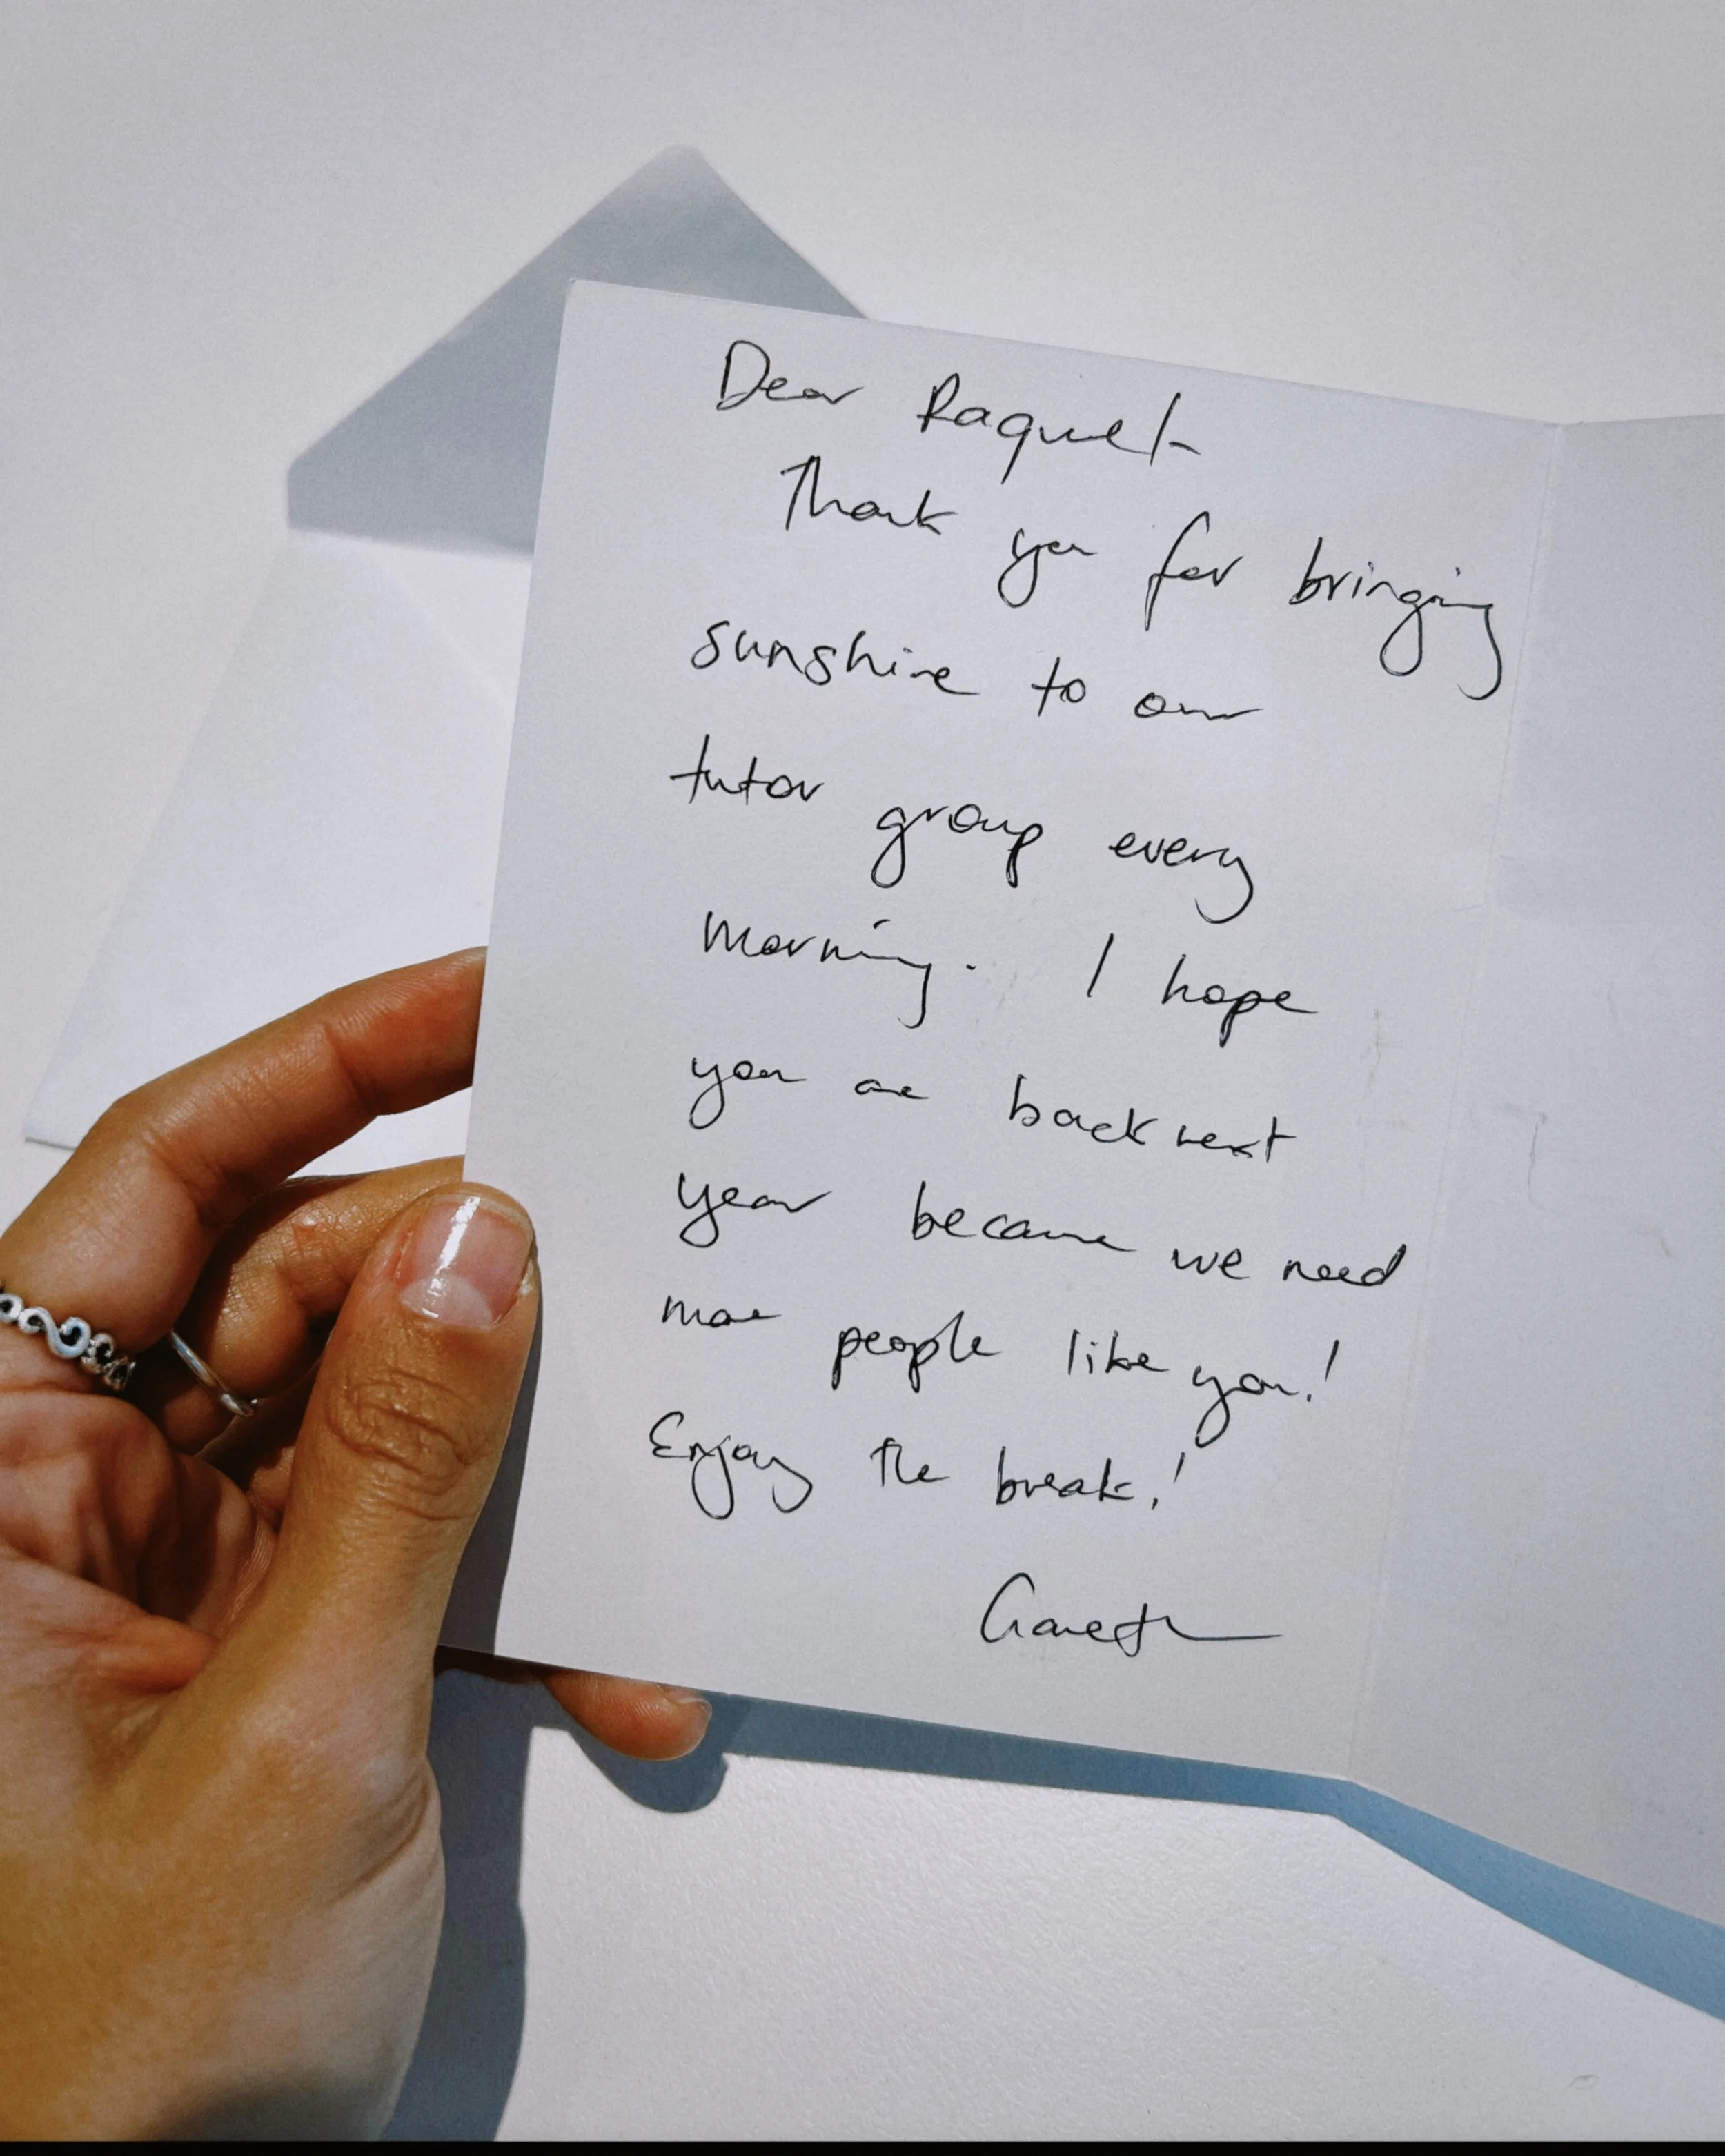 Dear Raquel
Thank you for bringing
sunshine to our
tutor group every
morning. I hope
you are back next
year because we need
more people like you!
Enjoy the break!
Gareth